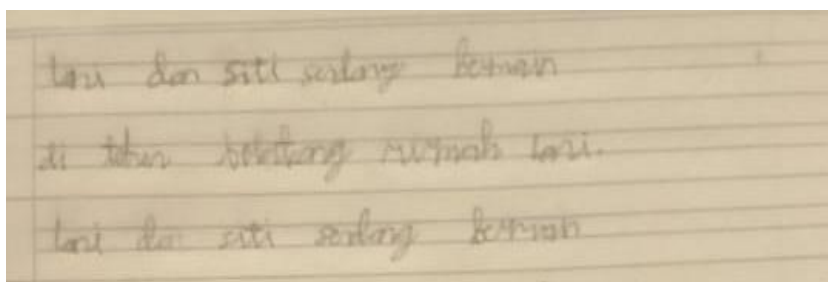 Lani dan siti sedang bermain
di kebun belakang rumah Lani.
Lani dan siti sedang bermain